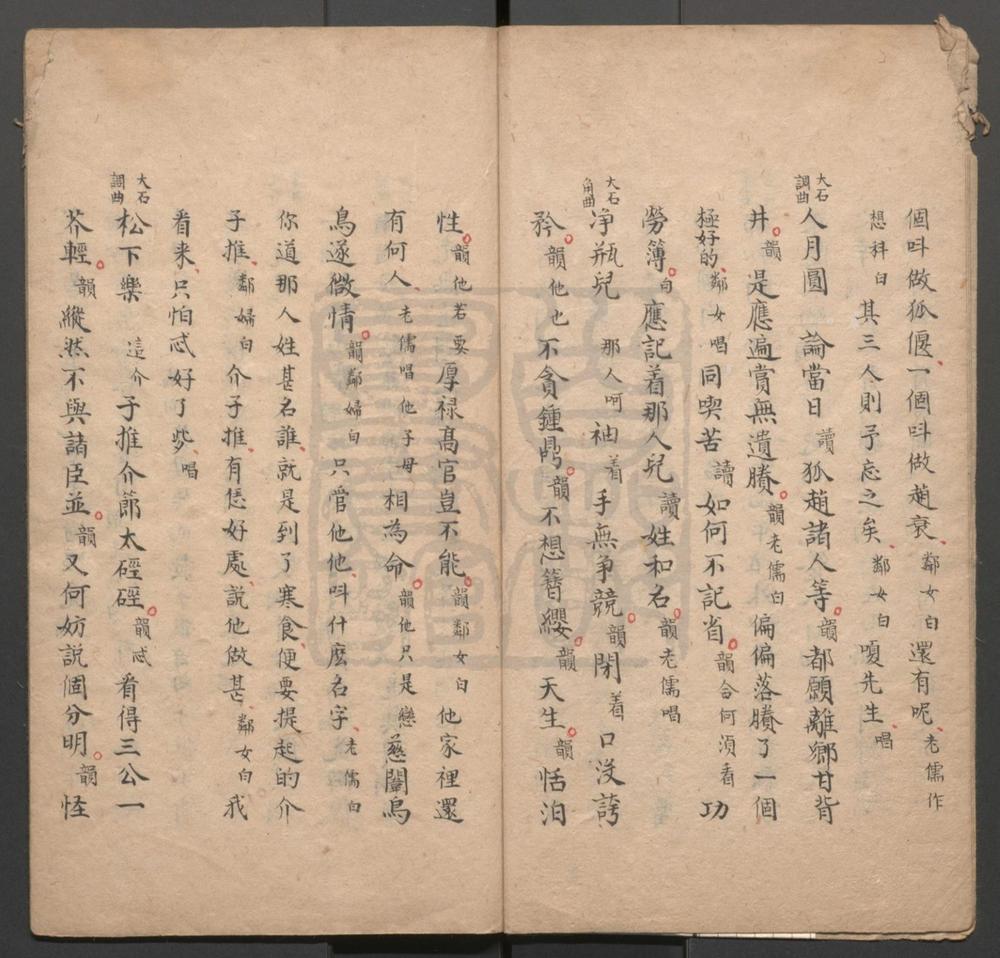 個呌做狐偃一個呌做趙衰鄰女白還有呢老儒作
想科白其三人則予忘之矣鄰女白嗄先生唱
大石調曲人月圓論當日讀狐趙諸人等韻都願離鄉甘背
井韻是應遍賞無遺賸韻老儒白偏偏落賸了一個
極好的鄰女唱同喫苦讀如何不記省韻合何湏看功
勞簿白應記着那人兒讀姓和名韻老儒唱
大石角曲净瓶兒那人呵袖着手無争競韻閉着口没誇
矜韻他也不貪鍾鼎韻不想簪纓韻天生韻恬泊
性韻他若要厚禄高官豈不能韻鄰女白他家裡還
有何人老儒唱他子母相為命韻他只是戀慈闈烏
鳥遂微情韻鄰婦白只管他他呌什麽名字老儒白
你道那人姓甚名誰就是到了寒食便要提起的介
子推鄰婦白介子推有恁好處說他做甚鄰女白我
看来只怕忒好了些唱
大石調曲松下樂這介子推介節太硜硜韻忒看得三公一
芥輕韻縱然不與諸臣並韻又何妨說個分明韻怪